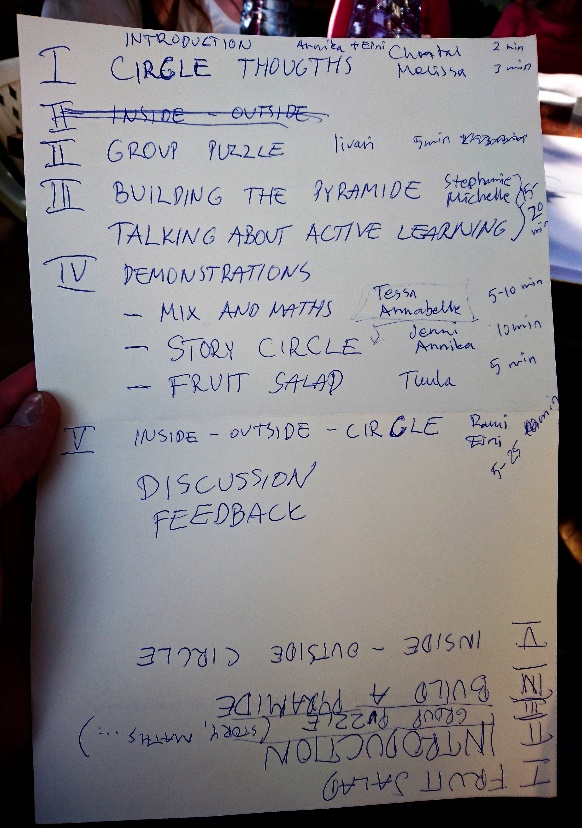 INTRODUCTION Annika + Eini Chantal 2 min
I CIRCLE THOUGTHS Melissa 3 min
II INSIDE - OUTSIDE
II GROUP PUZZLE Iivari 5min
III BUILDING THE PYRAMIDE Stephanie Michelle 15
TALKING ABOUT ACTIVE LEARNING 20 min
IV DEMONSTRATIONS
- MIX AND MATHS Tessa Annabelle 5-10 min
- STORY CIRCLE Jenni Annika 10min
- FRUIT SALAD Tuula 5 min
V INSIDE - OUTSIDE - CIRCLE Rami Eini
DISCUSSION
FEEDBACK
I FRUIT SALAD
II INTRODUCTION (STORY, MATHS ...)
III GROUP PUZZLE
IV BUILD A PYRAMIDE
V INSIDE - OUTSIDE CIRCLE